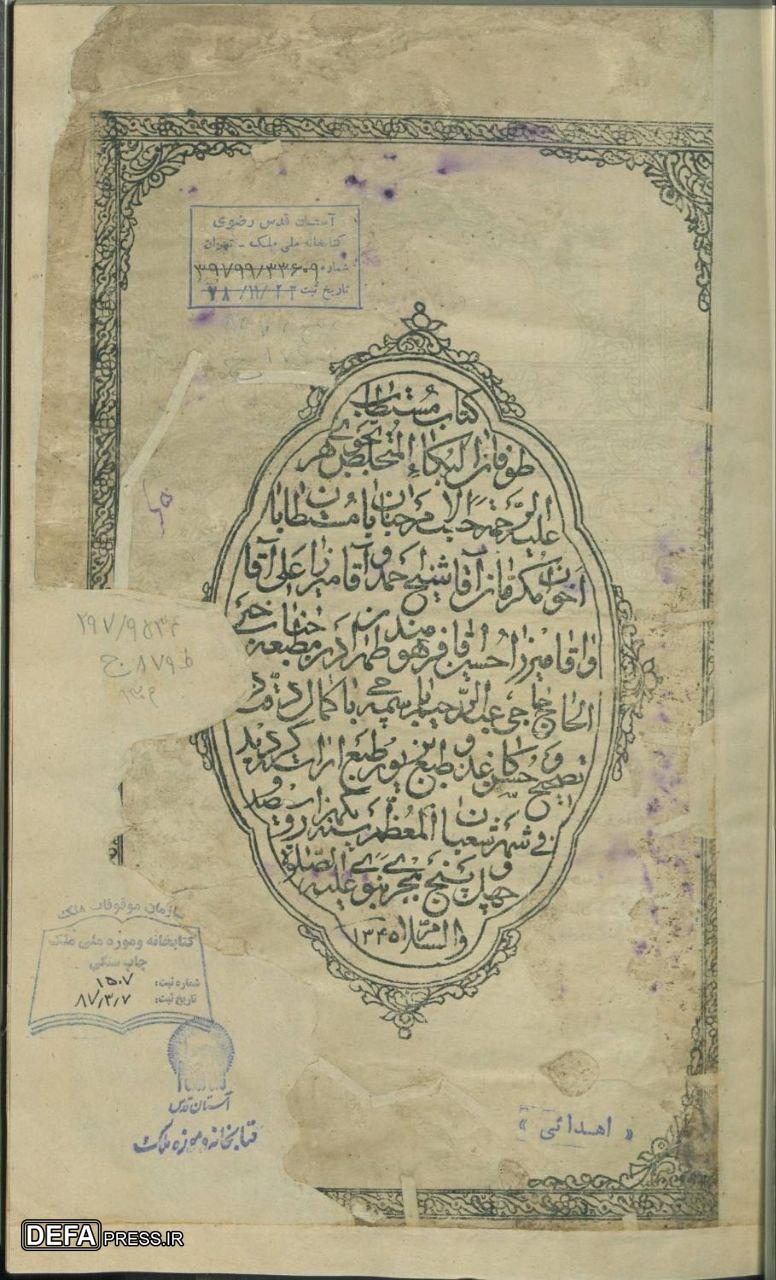 آستان قدس رضوی
کتابخانه ملی ملک - تهران
شماره ۳۹۷۹۹/۳۳۶۰۹
تاریخ ثبت ۷۸/۱۱/۲۳
کتاب مستطاب
طوفان البکاء المتخلص بجوهری
علیه الرحمة حسب
اخوان مکرمان آقا شیخ احمد و آقا میرزا علی آقا
و آقا میرزا حسین آقا در مطبعه
الحاج حاجی عبدالرحیم باسمه‌چی با کمال دقت
تصحیح و حسن کاغذ و طبع بزیور طبع آراسته گردید
فی شهر شعبان المعظم سنه یکهزار و سیصد و
چهل و پنج هجری نبوی علیه الصلوة
والسلام ۱۳۴۵
۲۹۷/۹۵۳۴
سازمان موقوفات ملک
کتابخانه و موزه ملی ملک
چاپ سنگی
شماره ثبت: ۱۵۰۷
تاریخ ثبت: ۸۷/۳/۷
آستان قدس
کتابخانه و موزه ملک
« اهدائی »
DEFAPRESS.IR